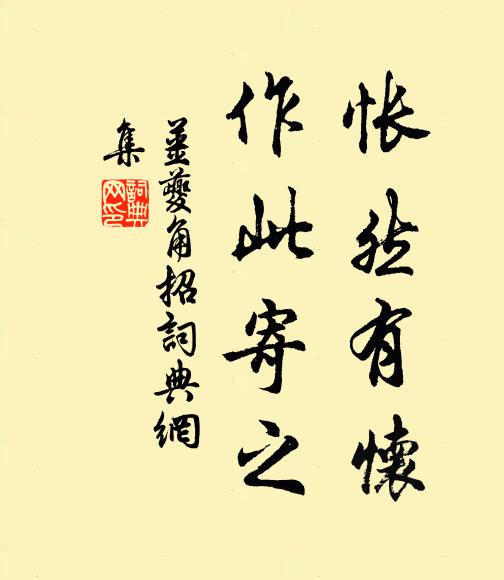 悵然有懷
作此寄之
姜夔角招詞典網
集
詞典網印